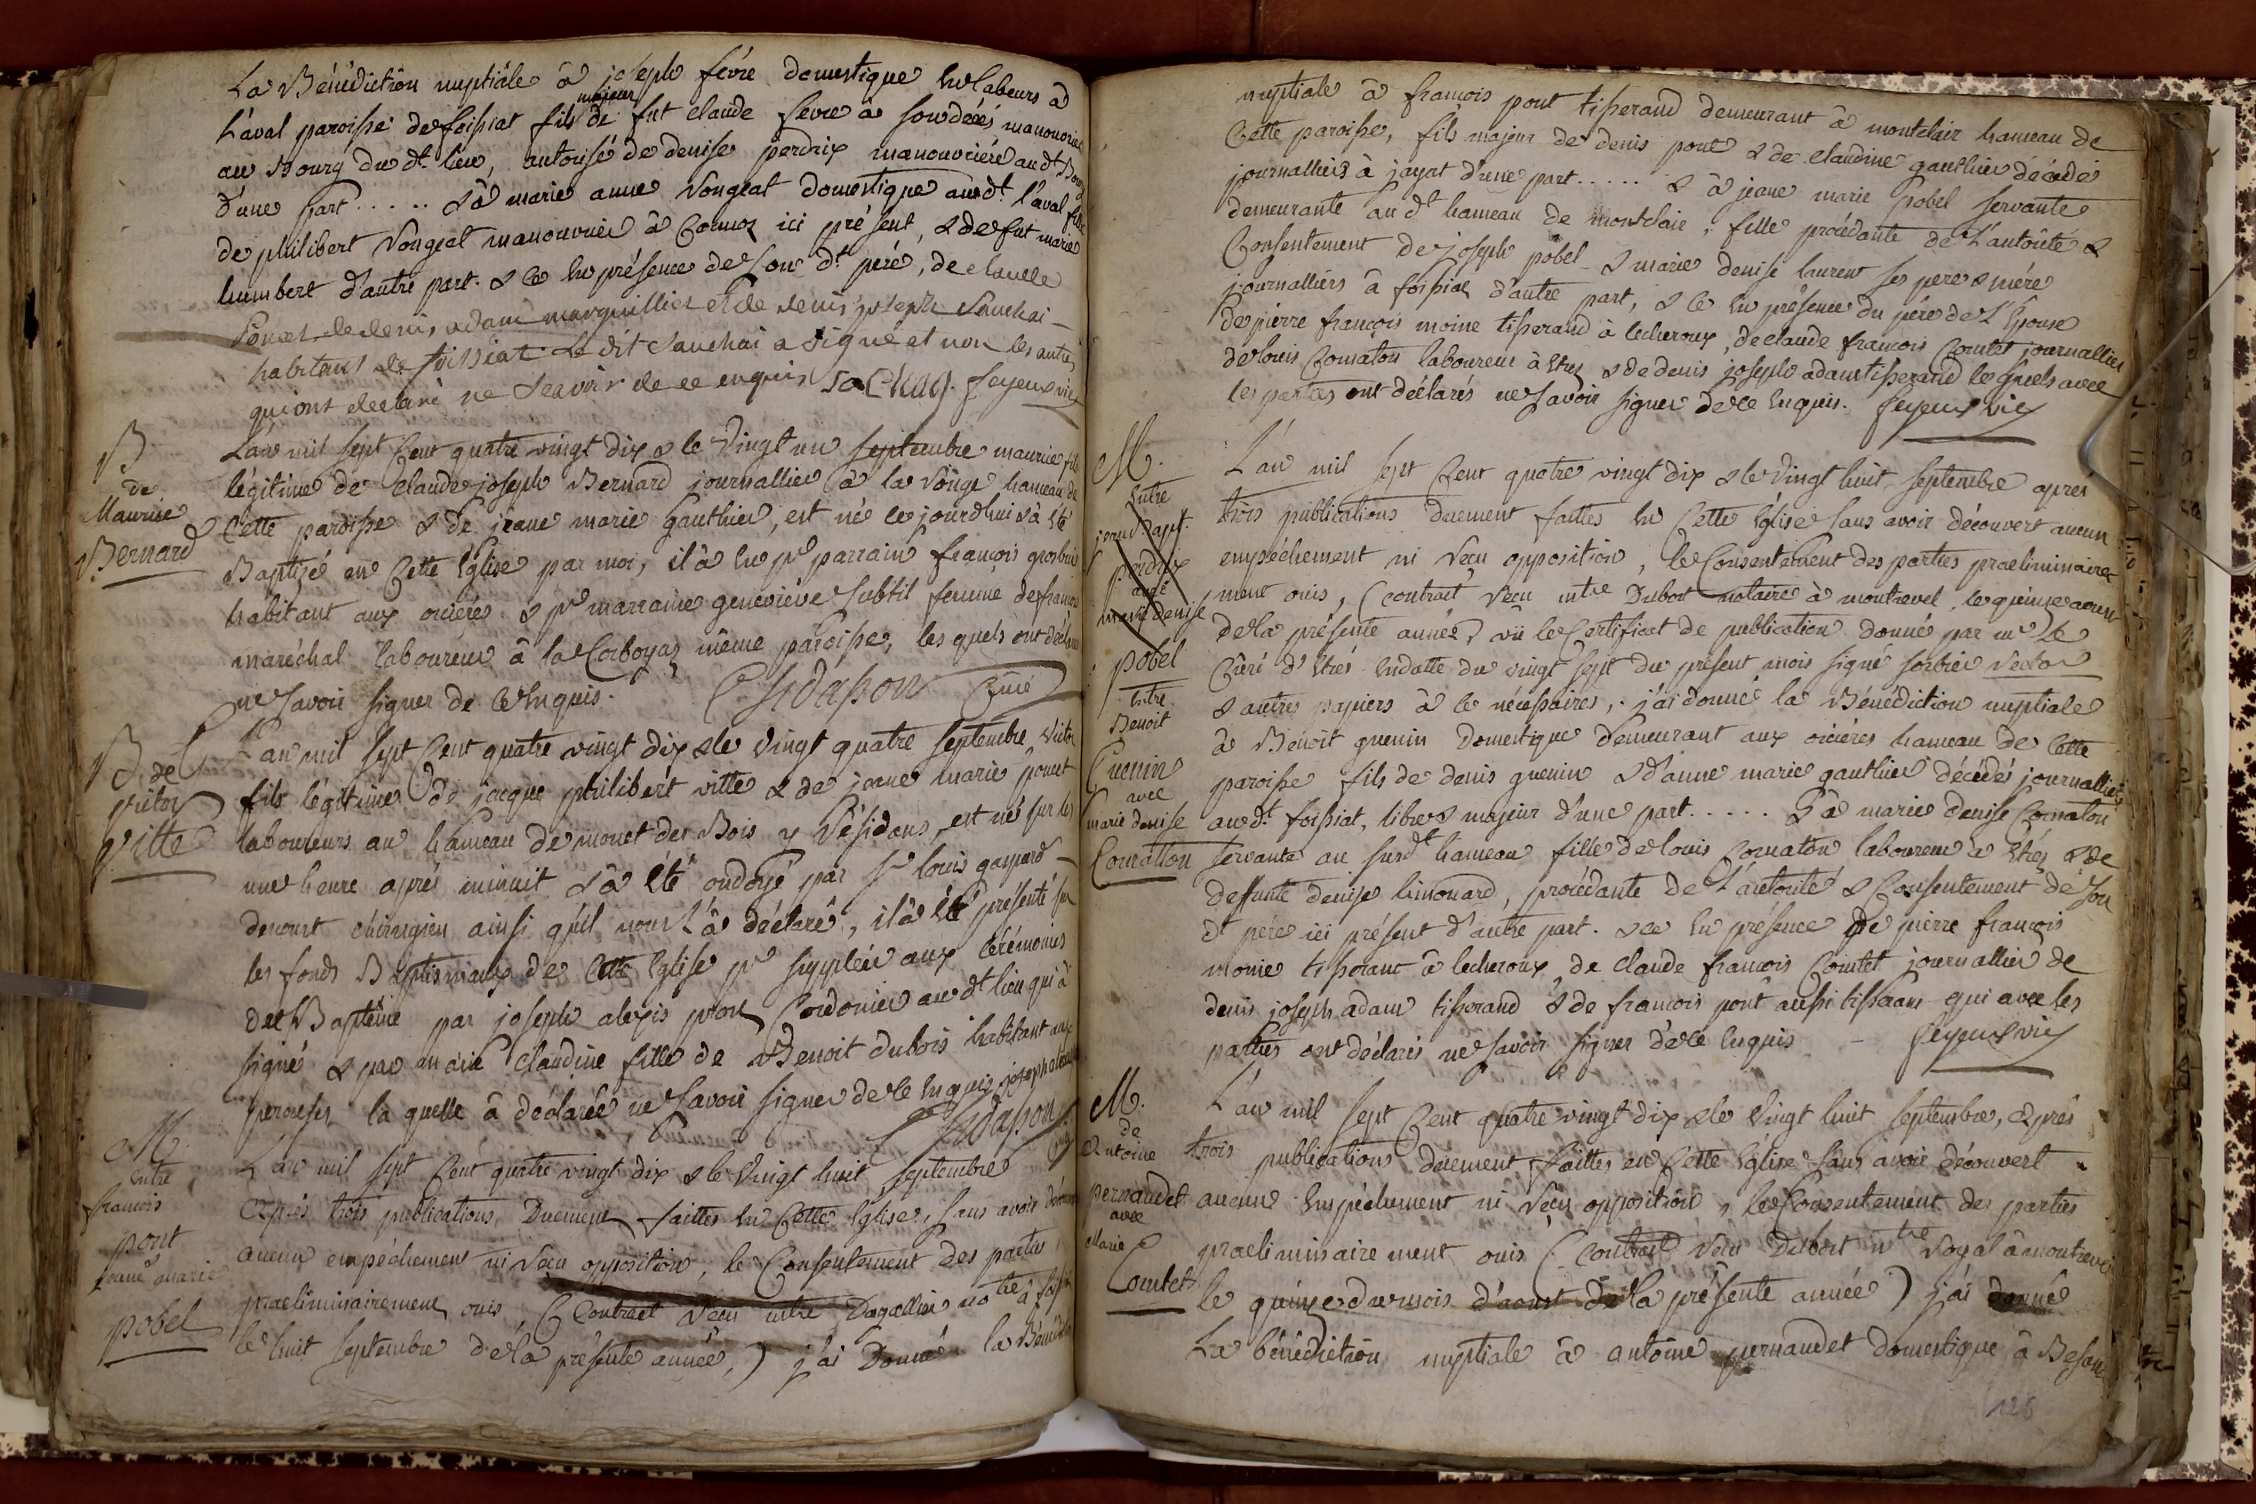 La Bénédiction nuptiale à joseph févre domestique en labeurs à
Laval paroisse de foissiat fils majeur de fut claude fevre à son décés manouvrier
au Bourg du dt. lieu, autorisé de denise perdrix manouvriére au dt. Bourg
d'une part ..... & à marie anne Vongeat domestique au dt. l'aval fille
de philibert Vongeat manouvrier à Cormoz ici présent, & de fut marie
humbert d'autre part. & ce en présence de son dt. pére, de claude
Poncet de denis adam marguillier et de denis joseph Sauchai
habitans de foissiat. Le dit Sauchai a signé et non les autres
qui ont déclaré ne Scavoir de ce enquis Sachay. feyeux vic
B
de
Maurice
Bernard
L'an mil sept Cent quatre vingt dix & le vingt un septembre maurice fils
légitime de claude joseph Bernard journallier à la Vouge hameau de
Cette paroisse & de jeane marie gauthier, est né le jourdhui & à été
Baptizé en Cette Eglise par moi, il à eu pr parrain francois grosbuis
habitant aux oriéres & pr marraine geneviéve subtil femme de francois
maréchal laboureur à la Corboyaz même paroisse, les quels ont déclarés
ne Savoir signer de ce Enquis. Curé
B. de
Victor
Vitte
L'an mil sept Cent quatre vingt dix & le Vingt quatre septembre Victor
fils légitime de jacque philibért vitte & de jeane marie poncet
laboureurs au hameau de monet des Bois y Résidans, est né sur les
une heure aprés minuit & à été ondoyé par Sr louis gaspard
chirurgien ainsi qu'il nous l'à déclaré, il à été présenté sur
les fonds Baptismaux de Cette Eglise pr suppléer aux Cérémonies
de Baptéme par joseph alexis Cordonier au dt lieu qui à
signé & par marie Claudine fille de Benoit dubois habitant aux
perouses la quelle à déclarée ne Savoir signer de ce Enquis joseph
M.
Entre
francois
pont
jeane marie
pobel
L'an mil sept Cent quatre vingt dix & le Vingt huit septembre
Aprés trois publications Duement faittes en Cette Eglise, sans avoir découvert
aucun empéchement ni Reçu opposition, le Consentement des parties
praeliminairement ouis (Contract Reçu entre Dagallier notre à foissiat
le huit septembre de la présente année,) j'ai Donné la Bénédiction
nuptiale à francois pont tisserand demeurant à montclair hameau de
Cette paroisse, fils majeur de denis pont & de claudine gauthier décédé
journalliers à jayat d'une part ..... & à jeane marie pobel servante
demeurante au dt hameau de montclair, fille procédante de L'autorité &
Consentement de joseph pobel & marie denise laurent ses pere & mére
journalliers à foissiat d'autre part, & ce en présence du pére de L'Epouse
de pierre francois moine tisserand à lecheroux, de claude francois Comtet journallier
de louis Cornaton laboureur à Etrez & de denis joseph adam tisserand les quels avec
les parties ont déclarés ne savoir signer de ce Enquis. feyeux vic
M.
Entre
jean bapt.
perdrix
avec
marie denise
pobel
Entre
Benoit
Guenin
avec
marie denise
Cornatton
L'an mil sept Cent quatre vingt dix & le Vingt huit septembre aprés
trois publications duement faittes en Cette Eglise sans avoir découvert aucun
empéchement ni Reçu opposition, le Consentement des parties praeliminaire
ment ouis, (contrait Reçu entre Dubost notaire à montrevel le quinze aoust
de la présente année) vü le Certificat de publication donné par mr le
Curé d'Etrés En datte du vingt sept du présent mois signé
& autres papiers à ce nécessaires, j'ai donné la Bénédiction nuptiale
à Benoit guenin Domestique demeurant aux oriéres hameau de Cette
paroisse fils de denis guenin & d'anne marie gauthier décédés journalliers
au dt. foissiat, libre & majeur d'une part ..... & à marie denise Cornaton
servante au susdt hameau fille de louis Cornaton laboureur à Etrés & de
deffunte denise limonard, procédante de L'autorité & Consentement de Son
dt pére ici présent d'autre part. & ce En présence de pierre francois
monie tisserant à lecheroux de claude francois Comtet journallier de
denis joseph adam tisserand & de francois pont aussi tisseran qui avec les
parties ont déclarés ne Savoir signer de ce Enquis feyeux vic
M.
de
Antoine
pernaudet
avec
Marie
Comtet
L'an mil sept Cent quatre vingt dix & le Vingt huit septembre, Aprés
trois publications duement faittes en Cette Eglise sans avoir découvert
aucune Empéchement ni Reçu opposition, le Consentement des parties
praeliminairement ouis (Contract Reçu Dubost ntre Royal à montrevel
le quinze du mois d'aoust de la présente année) j'ai donné
La bénédiction nuptiale à antoine pernaudet domestique à
128